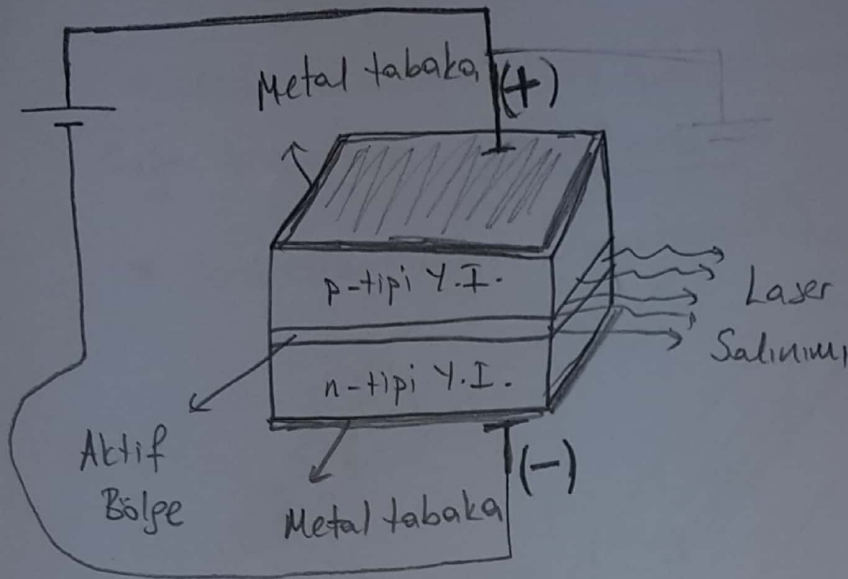 Metal tabaka
(+)
p-tipi Y.I.
n-tipi Y.I.
Laser
Salınımı
Aktif
Bölge
Metal tabaka
(-)